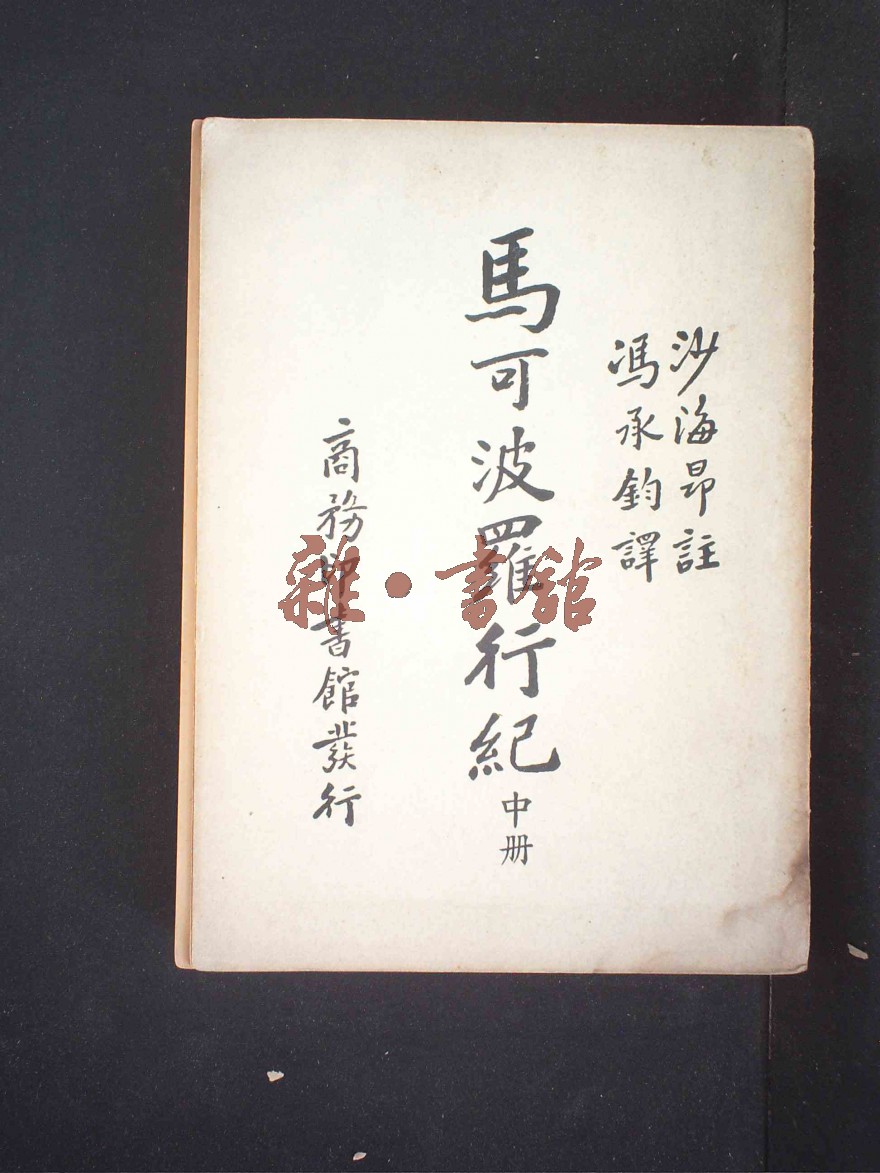 沙海昂註
馮承鈞譯
馬可波羅行紀
中册
商務印書館發行
雜·書館